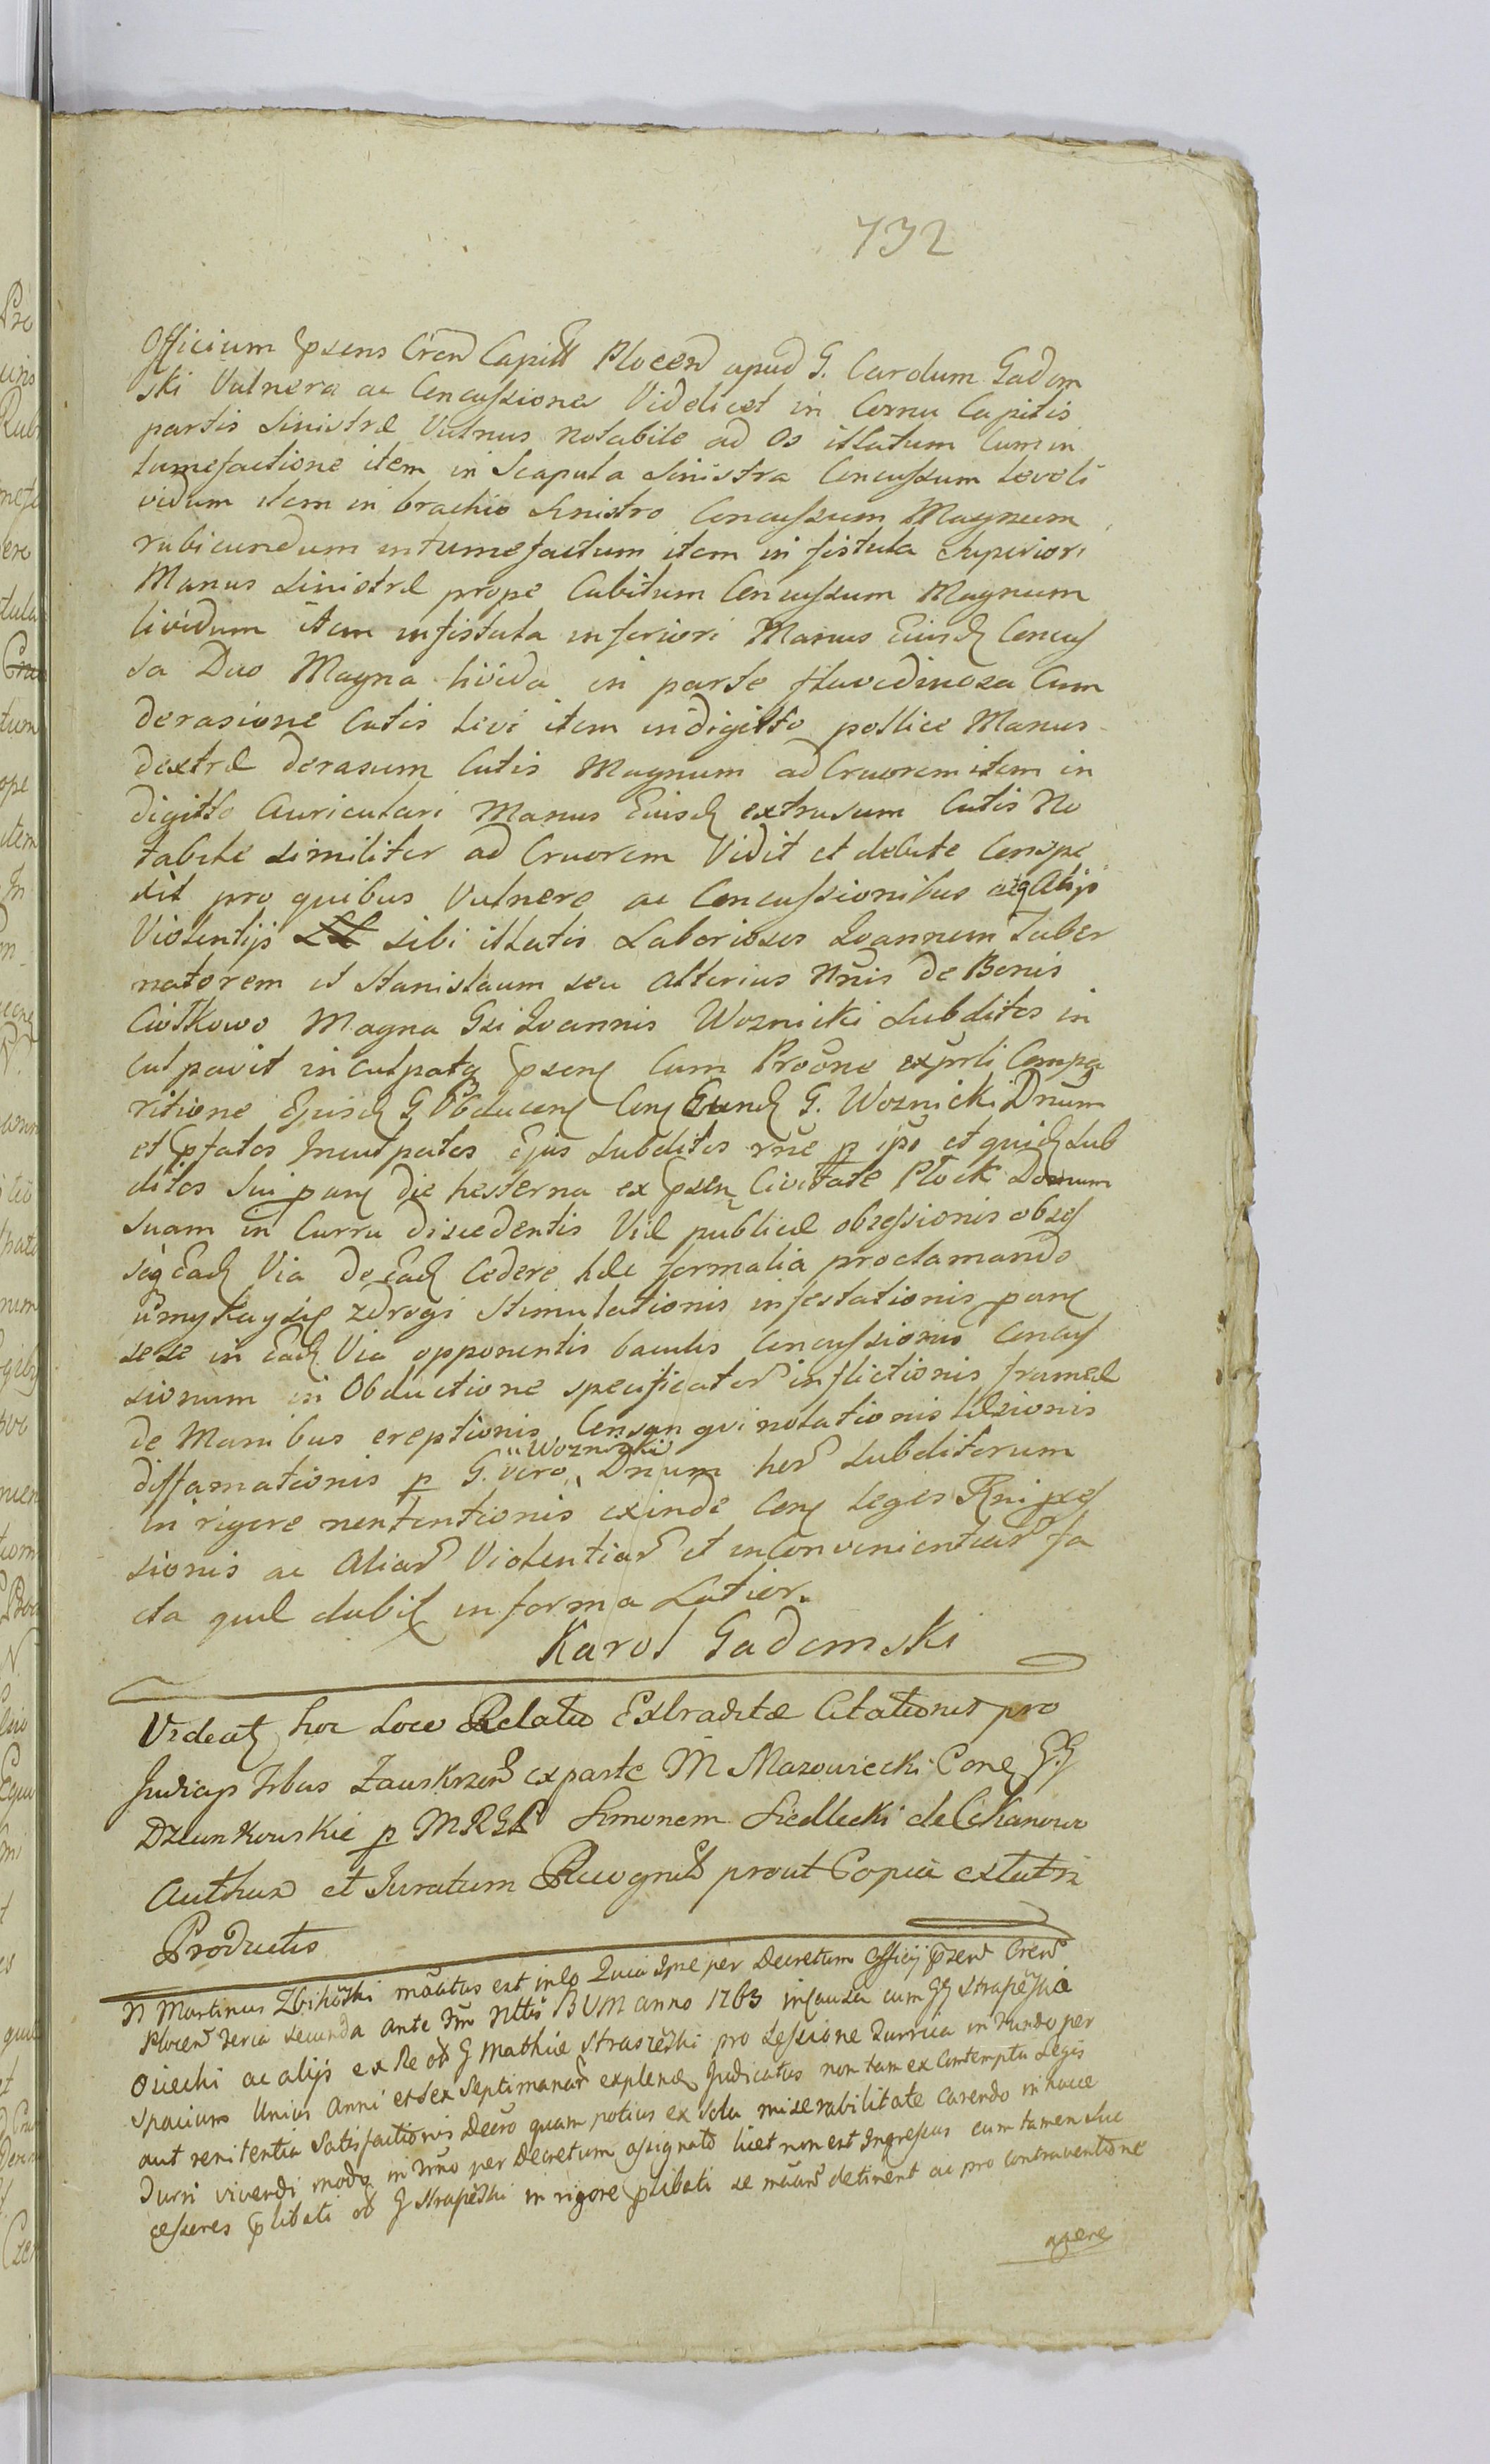 732
Officium Psens Cren Capitt Plocen apud G. Carolum Gadom
ski Vulnera ac Concussiones Videlicet in Cornu Capitis
partis Sinistræ Vulnus notabile ad Os illatum Cum in
tumefactione item in Scapula Sinistra Concussum Leve li
vidum item in brachio Sinistro Concussum Magnum
rubicundum intumefactum item in fistula Superiori
Manus Sinistræ prope Cubitum Concussum Magnum
lividum item in fistula inferiori Manus Eiusd Concus
sa Duo Magna livida in parte flavedinosa Cum
derasione Cutis Levi item in digitto pollice Manus
dextræ derasum Cutis Magnum ad Cruorem item in
digitto Auriculari Manus Eiusd extrusum Cutis No
tabile similiter ad Cruorem Vidit et debite Conspe
xit pro quibus Vulnere ac Concussionibus atq Alijs
Violentijs sibi illatis Laboriosos Ioannem Taber
natorem et Stanislaum seu alterius Nnis de Bonis
Ciołkowo Magna Gsi Ioannis Woznicki Subditos in
culpavit inculpatq Psens Cum Proone exprli Compa
ritione Ejusd G. Obducens Cons Eund G. Woznicki Dnum
et Pfatos Inculpatos Ejus Subditos rne p ipo et quid Sub
ditos Sui pans die hesterna ex Psen Civittate Płock Domum
Suam in Curru discedentis Viæ publicæ obsessionis obses
sęq Ead Via de Ead Cedere hæc formalia proclamando
umykay się zdrogi Stimulationis infestationis pans
sese in Ead Via opponentis baculis Concussionis Concus
sionum in Obductione specificatar inflictionis frameæ
de Manibus ereptionis Consangvinolationis læsionis
diffamationis p G. vero Woznicki Dnum hor Subditorum
in rigore nententionis exinde Cons Legis Rni pces
sionis ac Aliar Violentiar et inconvenientiar fa
cta quæ dabit in forma Latior.
Karol Gadomski
Videat hoc Loco Relatio Extraditæ Citationis pro
Judicijs Trbus Zauskrzen ex parte M Mazowiecki Cone GG
Dziunkowskie p MRGL Simonem Siedlecki de Ciekanowo
Authen et Iuratum Recognit prout Copia extatri
Productis
N Martinus Zbikoski manatus est in eo Quia Ipse per Decretum Officij Psen Cren
Plocen feria secunda ante Fm Nttis BVM anno 1763 in causa cum GG Straszeskie
Osiecki ac alijs ex Re od G Mathiæ Straszeski pro Sessione Turris in fundo per
spacium Unius Anni et sex Septimanar explend Judicatus non tam ex Contemptu Legis
aut renitentia Satisfactionis Decro quam potius ex sola miserabilitate carendo in hacce
Turri vivendi modo in Trno per Decretum assignato licet non est Ingressus cum tamen Suc
cessores plibati od G Straszeski in rigore plibati se manr detinent ac pro contraventione
agere